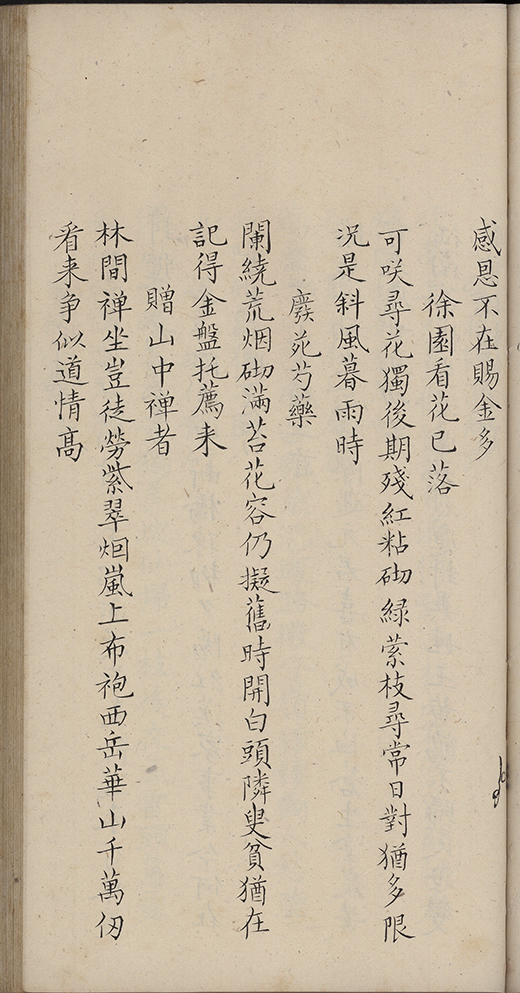 感恩不在賜金多
徐園看花已落
可咲尋花獨後期殘紅粘砌綠縈枝尋常日對猶多限
況是斜風暮雨時
廢苑芍藥
闌繞荒烟砌滿苔花容仍擬舊時開白頭隣叟貧猶在
記得金盤托薦来
贈山中禅者
林間禅坐豈徒勞紫翠烟嵐上布袍西岳華山千萬仞
看来争似道情髙